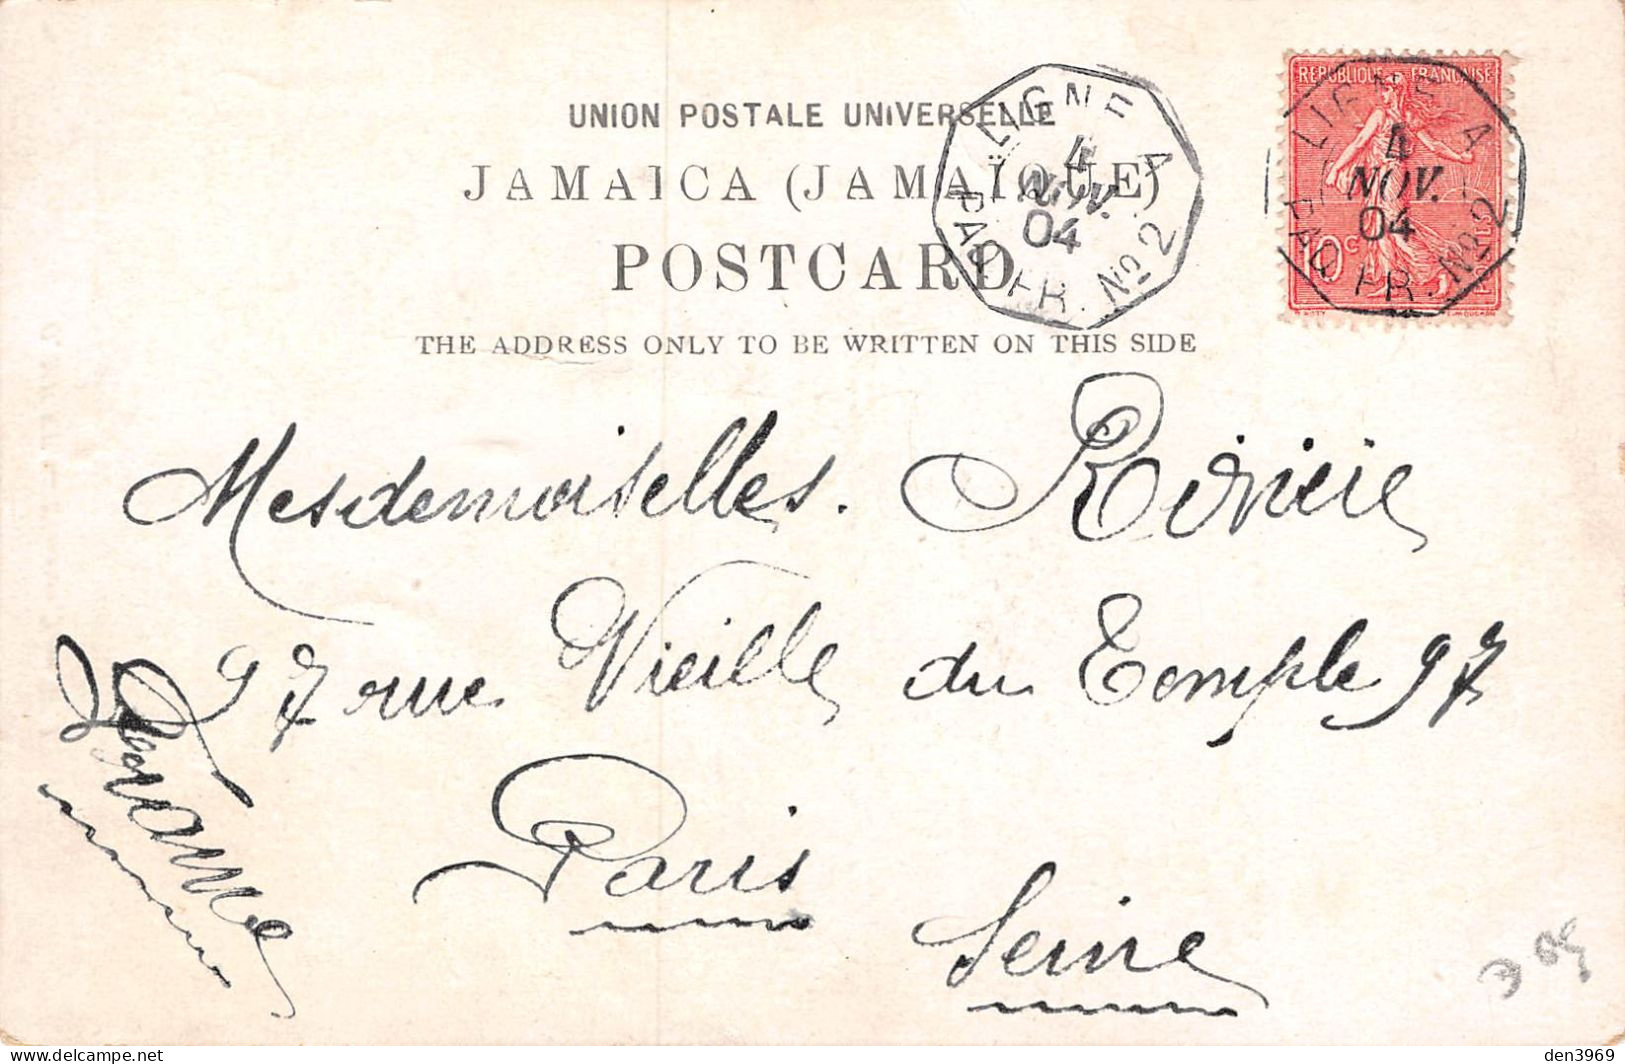 UNION POSTALE UNIVERSELLE
JAMAICA (JAMAÏQUE)
POSTCARD
THE ADDRESS ONLY TO BE WRITTEN ON THIS SIDE
LIGNE A
4
NOV.
04
PAQ. FR. No 2
REPUBLIQUE FRANÇAISE
10c
LIGNE A
4
NOV.
04
PAQ. FR. No 2
Mesdemoiselles. Rivière
97 rue Vieille du Temple 97
Paris
Seine
den3969